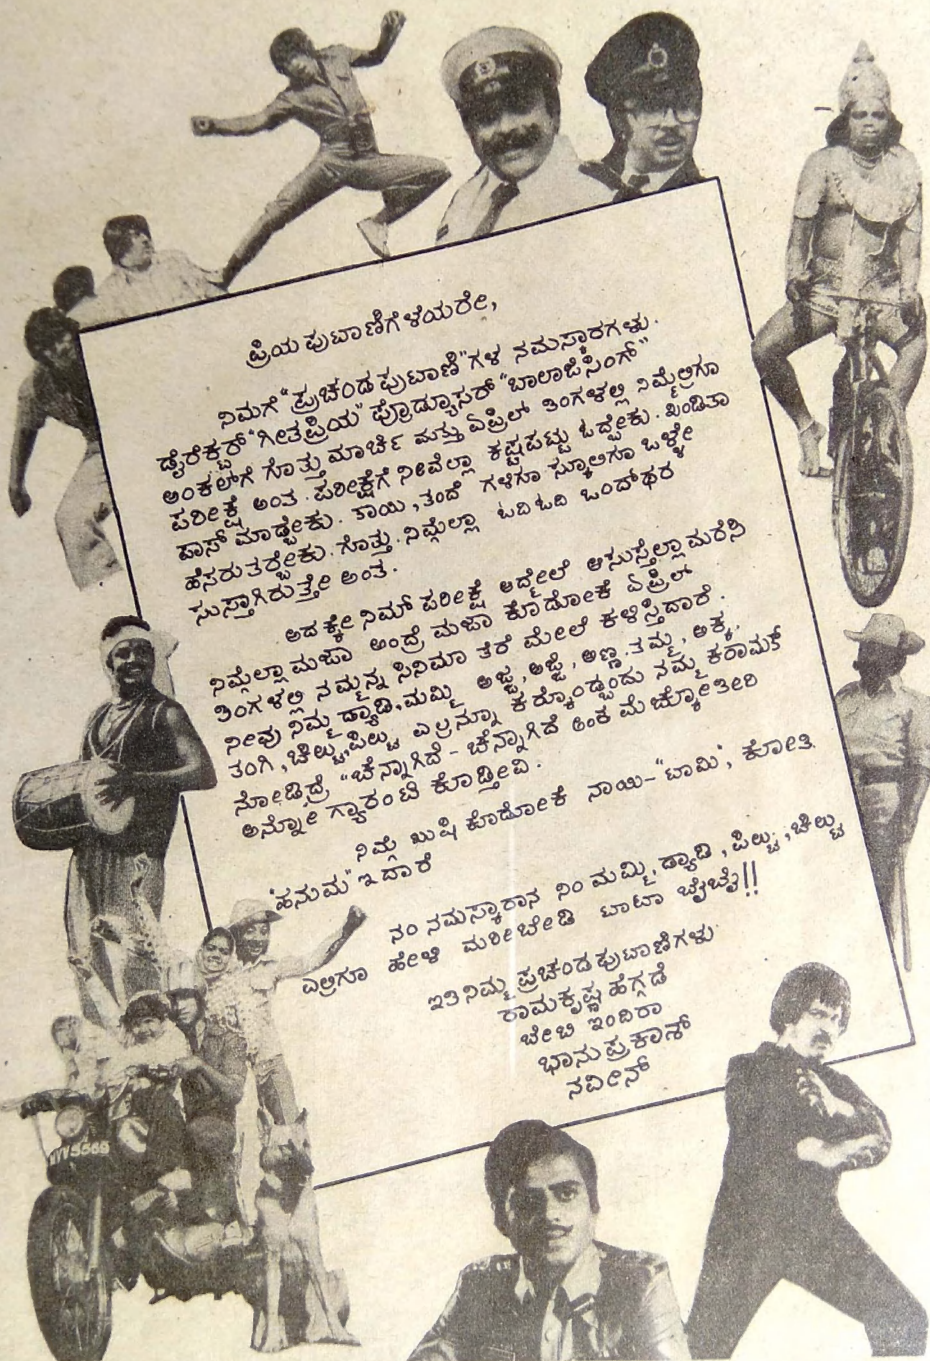 ಪ್ರಿಯ ಪುಟಾಣಿಗೆಳೆಯರೇ,
ನಿಮಗೆ "ಪ್ರಚಂಡ ಫುಟಾಣಿ"ಗಳ ನಮಸ್ಕಾರಗಳು.
ಡೈರೆಕ್ಟರ್ "ಗೀತಪ್ರಿಯ" ಪ್ರೊಡ್ಯೂಸರ್ "ಬಾಲಾಜಿಸಿಂಗ್"
ಅಂಕಲ್‌ಗೆ ಗೊತ್ತು ಮಾರ್ಚಿ ಮತ್ತು ಏಪ್ರಿಲ್ ತಿಂಗಳಲ್ಲಿ ನಿಮ್ಮೆಲ್ರಿಗೂ
ಪರೀಕ್ಷೆ ಅಂತ. ಪರೀಕ್ಷೆಗೆ ನೀವೆಲ್ಲಾ ಕಷ್ಟಪಟ್ಟು ಓದ್ಬೇಕು. ಖಂಡಿತಾ
ಪಾಸ್ ಮಾಡ್ಬೇಕು. ತಾಯಿ, ತಂದೆ ಗಳಿಗೂ ಸ್ಕೂಲಿಗೂ ಒಳ್ಳೇ
ಹೆಸರು ತರ್‍ಬೇಕು. ಗೊತ್ತು. ನಿಮ್ಗೆಲ್ಲಾ ಓದಿ ಓದಿ ಒಂದ್‌ಥರ
ಸುಸ್ತಾಗಿರುತ್ತೇ ಅಂತ.
ಅದಕ್ಕೇ ನಿಮ್ ಪರೀಕ್ಷೆ ಆದ್ಮೇಲೆ ಆಸುಸ್ತೆಲ್ಲಾ ಮರೆಸಿ
ನಿಮ್ಗೆಲ್ಲಾ ಮಜಾ ಅಂದ್ರೆ ಮಜಾ ಕೊಡೋಕೆ ಏಪ್ರಿಲ್
ತಿಂಗಳಲ್ಲಿ ನಮ್ಮನ್ನ ಸಿನಿಮಾ ತೆರೆ ಮೇಲೆ ಕಳಿಸ್ತಿದಾರೆ.
ನೀವು ನಿಮ್ಮ ಡ್ಯಾಡಿ, ಮಮ್ಮಿ ಅಜ್ಜ, ಅಜ್ಜಿ, ಅಣ್ಣ. ತಮ್ಮ, ಅಕ್ಕ,
ತಂಗಿ, ಚಿಲ್ಟು, ಪಿಲ್ಟು ಎಲ್ರನ್ನೂ ಕರ್‍ಕೊಂಡ್ಬಂದು ನಮ್ಮ ಕರಾಮತ್
ನೋಡಿದ್ರೆ "ಚೆನ್ನಾಗಿದೆ - ಚೆನ್ನಾಗಿದೆ ಅಂತ ಮೆಚ್ಕೋತೀರಿ
ಅನ್ನೋ ಗ್ಯಾರಂಟಿ ಕೊಡ್ತೀವಿ.
ನಿಮ್ಗೆ ಖುಷಿ ಕೊಡೋಕೆ ನಾಯಿ-"ಟಾಮಿ", ಕೋತಿ
"ಹನುಮ" ಇದಾರೆ
ನಂ ನಮಸ್ಕಾರಾನ ನಿಂ ಮಮ್ಮಿ, ಡ್ಯಾಡಿ, ಪಿಲ್ಟು, ಚಿಲ್ಟು
ಎಲ್ರಿಗೂ ಹೇಳಿ ಮರೀಬೇಡಿ ಟಾಟಾ ಬೈಬೈ!!
ಇತಿ ನಿಮ್ಮ ಪ್ರಚಂಡ ಫುಟಾಣಿಗಳು
ರಾಮಕೃಷ್ಣ ಹೆಗ್ಗಡೆ
ಬೇಬಿ ಇಂದಿರಾ
ಭಾನು ಪ್ರಕಾಶ್
ನವೀನ್